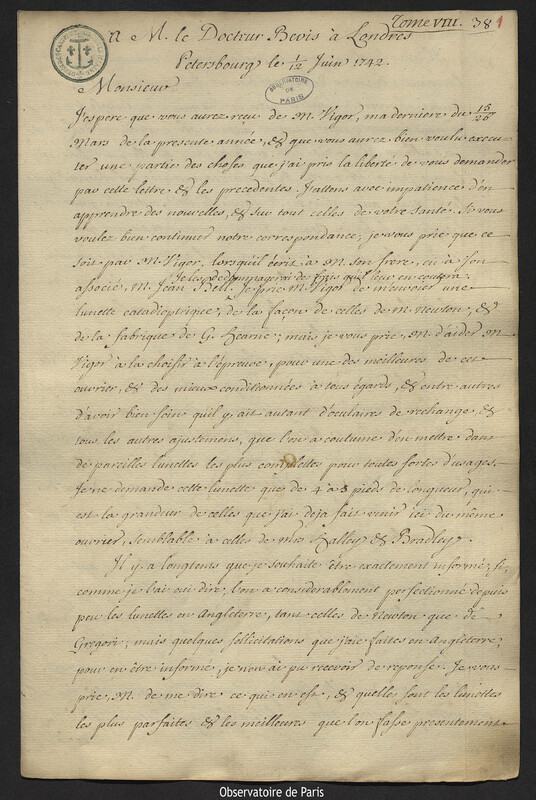 Tome VIII. 38 1
A M. le Docteur Bevis à Londres
Petersbourg le 1/12 Juin 1742.
OBSERVATOIRE DE PARIS
Monsieur
J'espere que vous aurez reçu de M. Vigor, ma derniere du 15/26
Mars de la presente année, & que vous aurez bien voulu execu-
ter une partie des choses que j'ai pris la liberté de vous demander
par cette lettre & les precedentes. J'attens avec impatience d'en
apprendre des nouvelles, & sur tout celles de votre santé. Si vous
voulez bien continuer notre correspondance, je vous prie que ce
soit par M. Vigor, lorsqu'il écrit à M. son frere, ou à son
Je les dedommagerai des frais qu'il leur en coutera.
associé, M. Jean Bell. Je prie M. Vigor de m'envoier une
lunette catadioptrique, de la façon de celles de M. Newton, &
de la fabrique de G. Hearne; mais je vous prie, M. d'aider M.
Vigor à la choisir à l'épreuve, pour une des meilleures de cet
ouvrier, & des mieux conditionnées à tous égards, & entre autres
d'avoir bien soin qu'il y ait autant d'oculaires de rechange, &
tous les autres ajustemens, que l'on a coutume d'en mettre dans
de pareilles lunettes les plus complettes pour toutes sortes d'usages.
Je ne demande cette lunette que de 4 à 5 pieds de longueur, qui
est la grandeur de celles que j'ai deja fait venir ici du même
ouvrier, semblable à celles de Mrs Halley & Bradley.
Il y a longtems que je souhaite être exactement informé, si,
comme je l'ai oui dire, l'on a considerablement perfectionné depuis
peu les lunettes en Angleterre, tant celles de Newton que de
Gregori; mais quelques sollicitations que j'aie faites en Angleterre,
pour en être informé, je n'en ai pu recevoir de reponse. Je vous
prie, M. de me dire ce qui en est, & quelles sont les lunettes
les plus parfaites & les meilleures que l'on fasse presentement
Observatoire de Paris